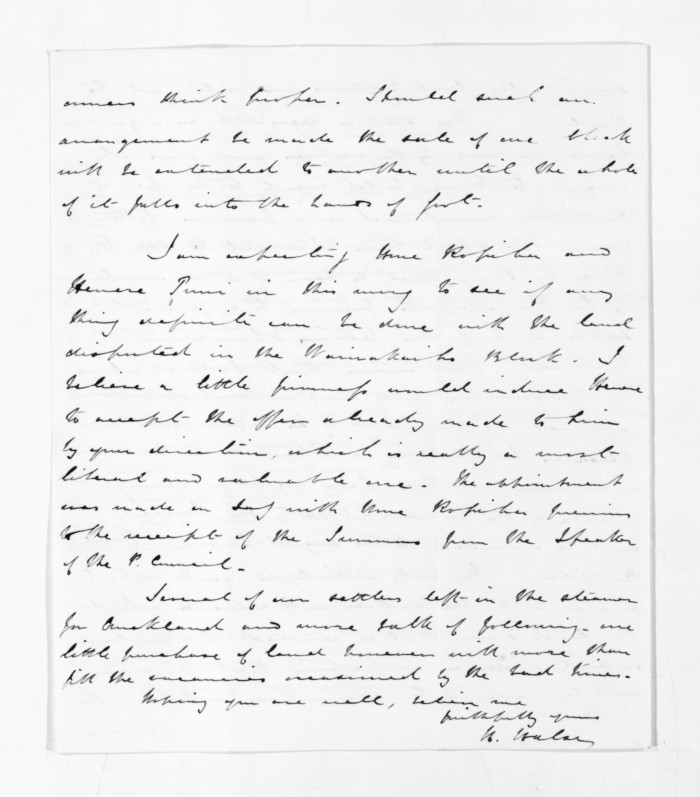 owners think proper. Should such an
arrangement be made the sale of one block
will be extended to another until the whole
of it falls into the hands of Govt.
I am expecting Hone Ropiha and
Henere in this morng to see if any
thing definite can be done with the land
disputed in the Block. I
believe a little firmness would induce Henere
to accept the offer already made to him
by your direction, which is really a most
liberal and valuable one. The appointment
was made on with Hone Ropiha previous
to the receipt of the Summons from the Speaker
of the P. Council.
Several of our settlers left in the steamer
for Auckland and more talk of following. one
little purchase of land however will more than
fill the vacancies occasioned by the bad times.
Hoping you are well, believe me
faithfully yours
H. Halse